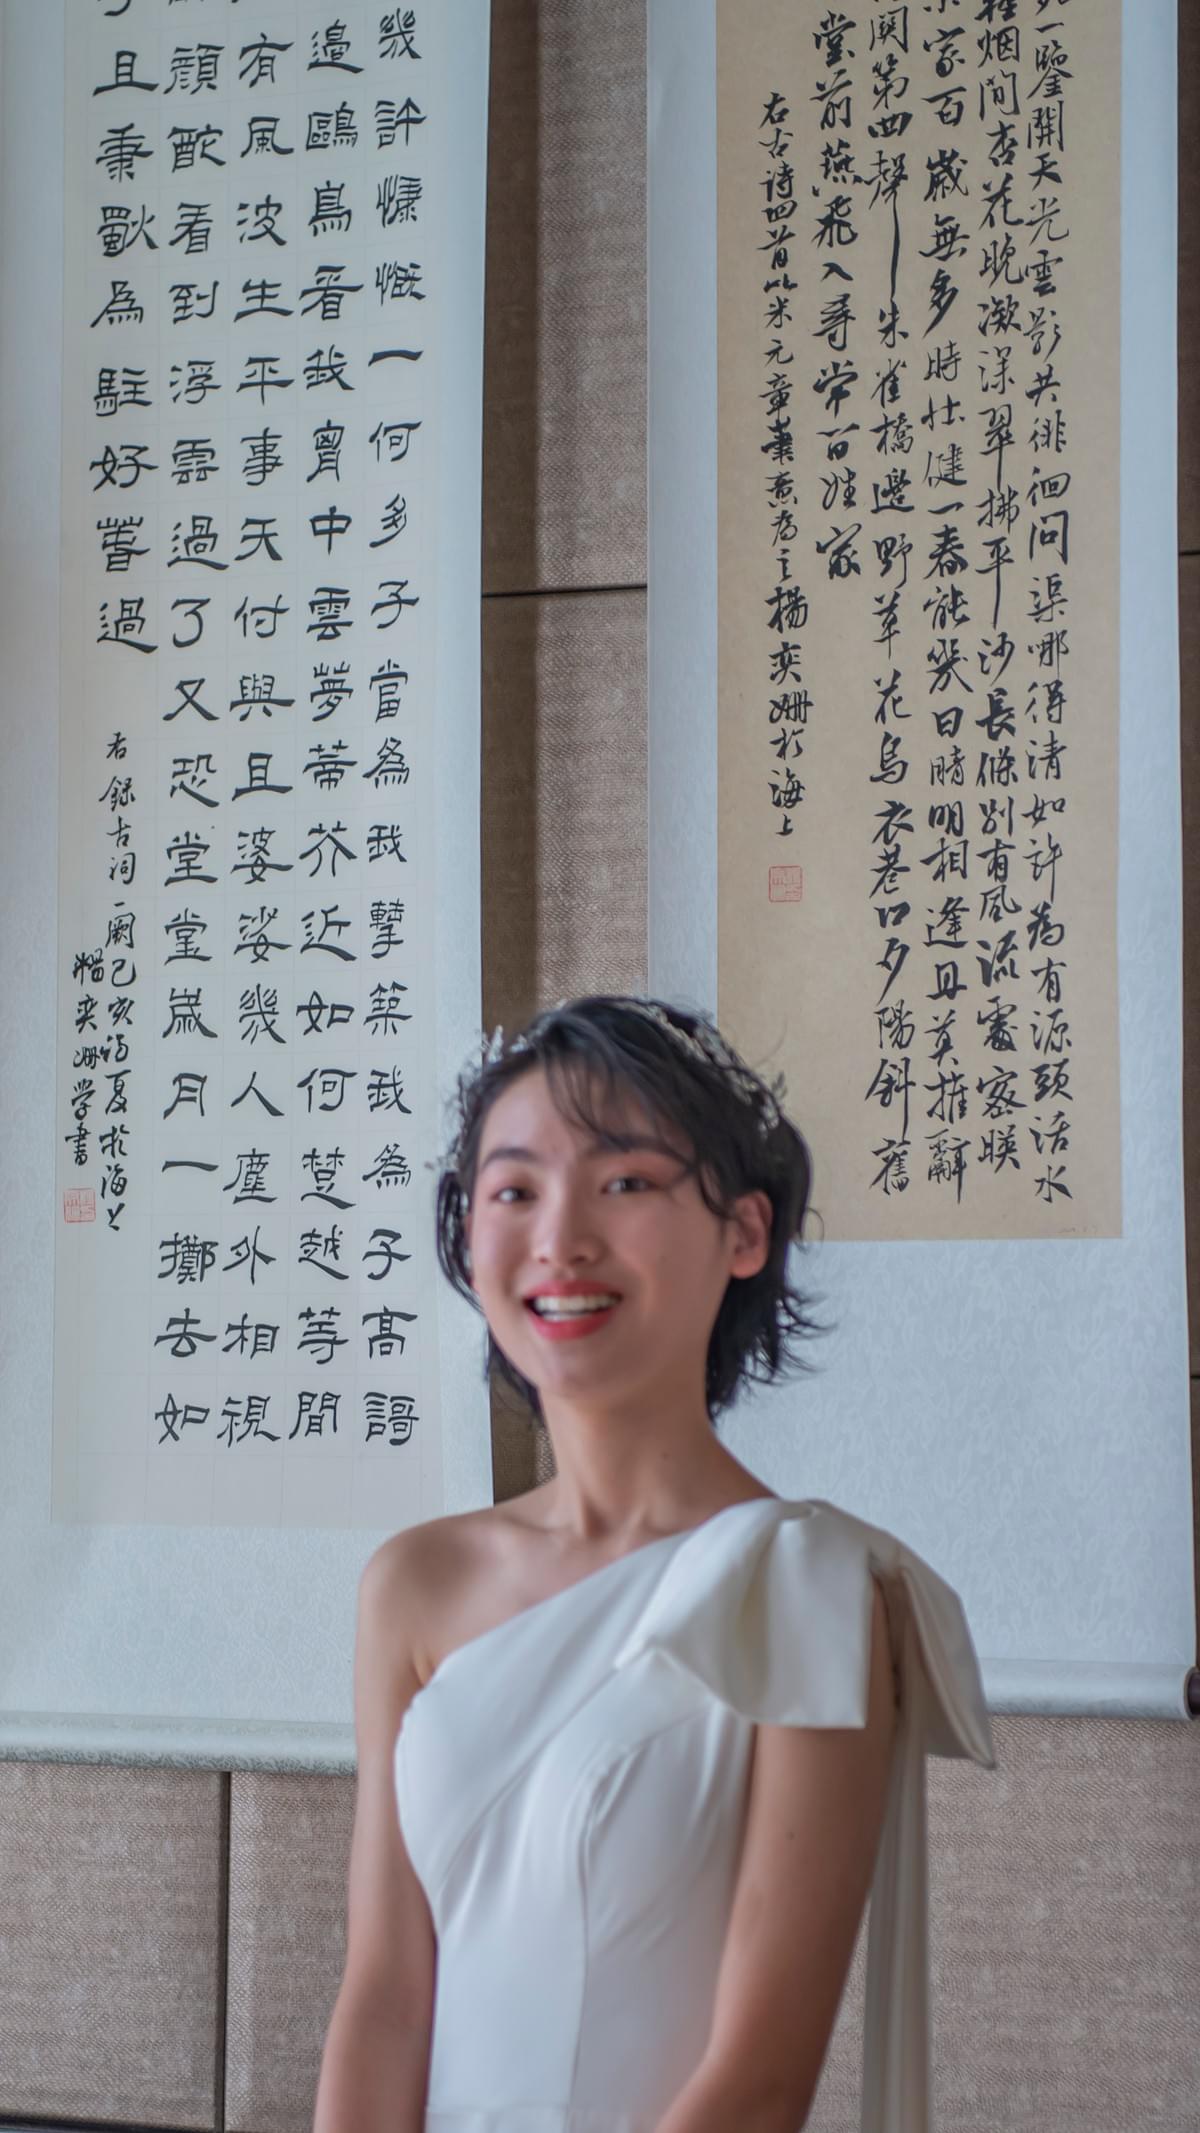 一鑒開天光雲影共徘徊問渠哪得清如許為有源頭活水
種烟閒杏花晚漵深翠拂平沙長條別有風流處密映
家百歲無多時壯健一春能幾日晴明相逢且莫推辭
關第四聲朱雀橋邊野草花烏衣巷口夕陽斜舊
堂前燕飛入尋常百姓家
右古詩四首以米元章筆意為之楊奕珊於海上
幾許慷慨一何多子當為我擊築我為子高謌
邊鷗鳥看我胷中雲夢蒂芥近如何楚越等閒
有風波生平事天付與且婆娑幾人塵外相視
顏酡看到浮雲過了又恐堂堂歲月一擲去如
且秉燭為駐好萅過
右錄古詞一闕己亥初夏於海上
楊奕珊學書